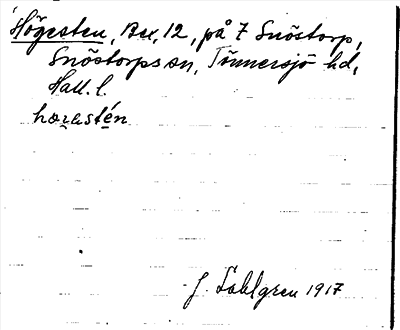 Högesten, Bex, 12, på 7 Snöstorp,
Snöstorps sn, Tönnersjö hd,
Hall. l.
hœ̨ɡ̨estén
J. Sahlgren 1917